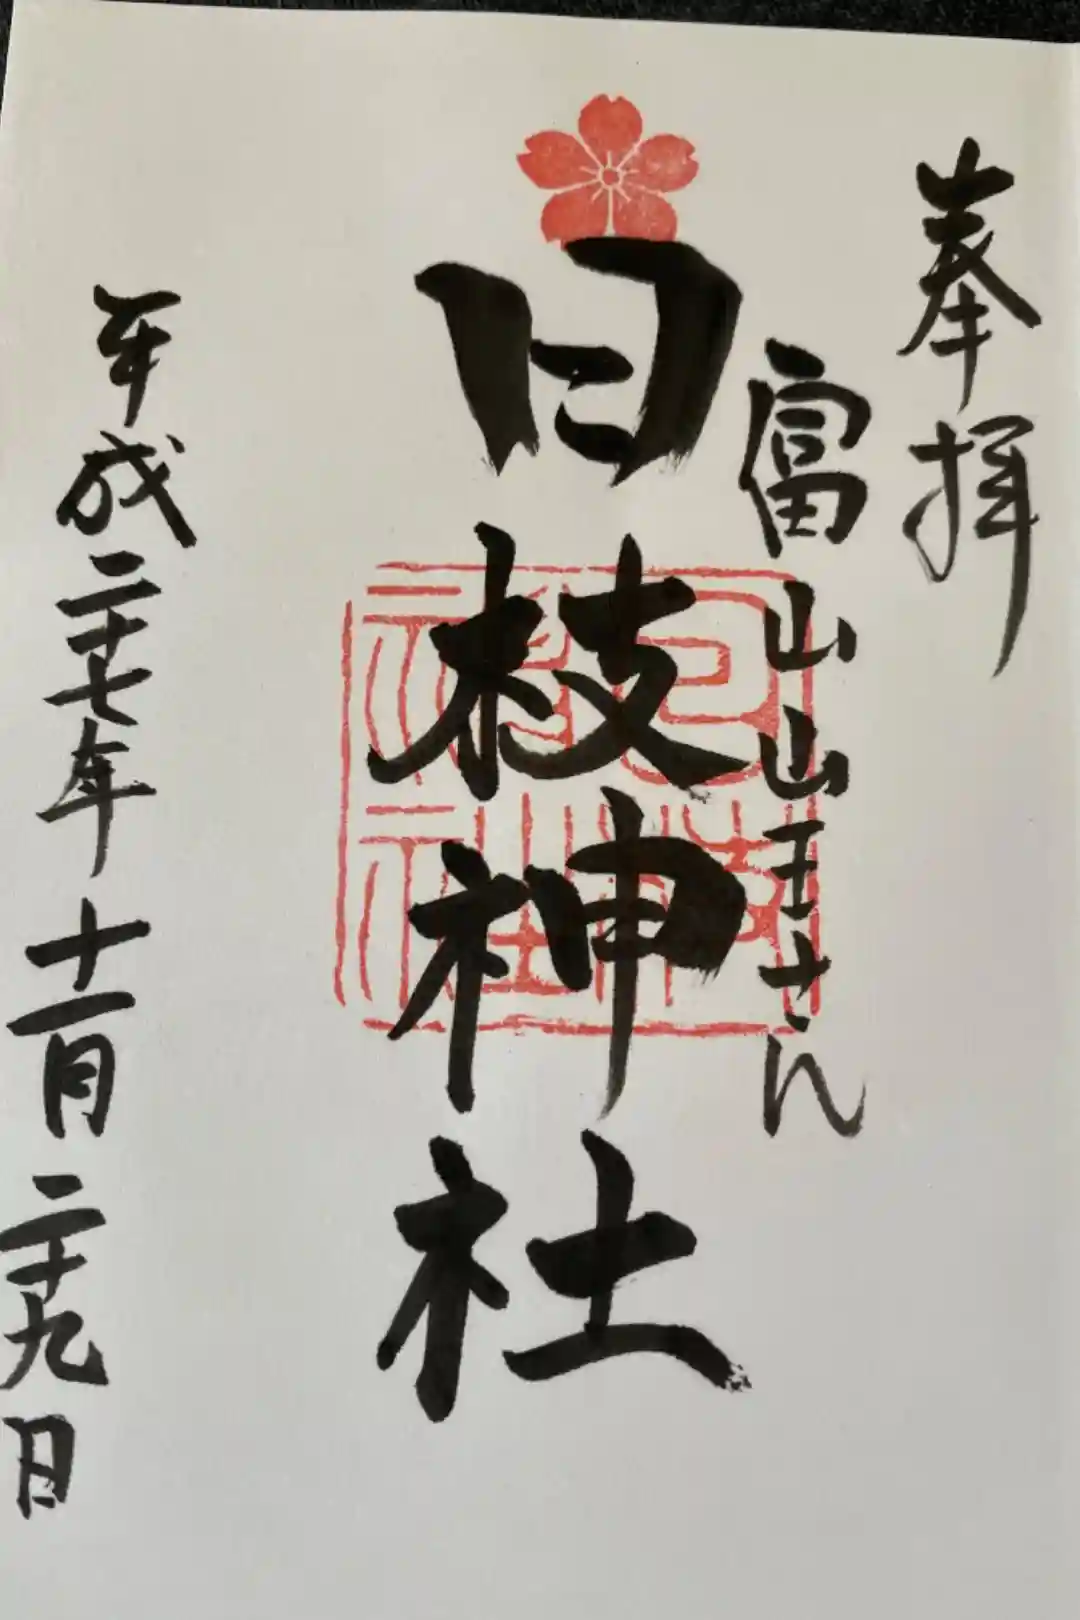 奉拝
富山山王さん
日枝神社
平成二十七年十一月二十九日
日枝神社